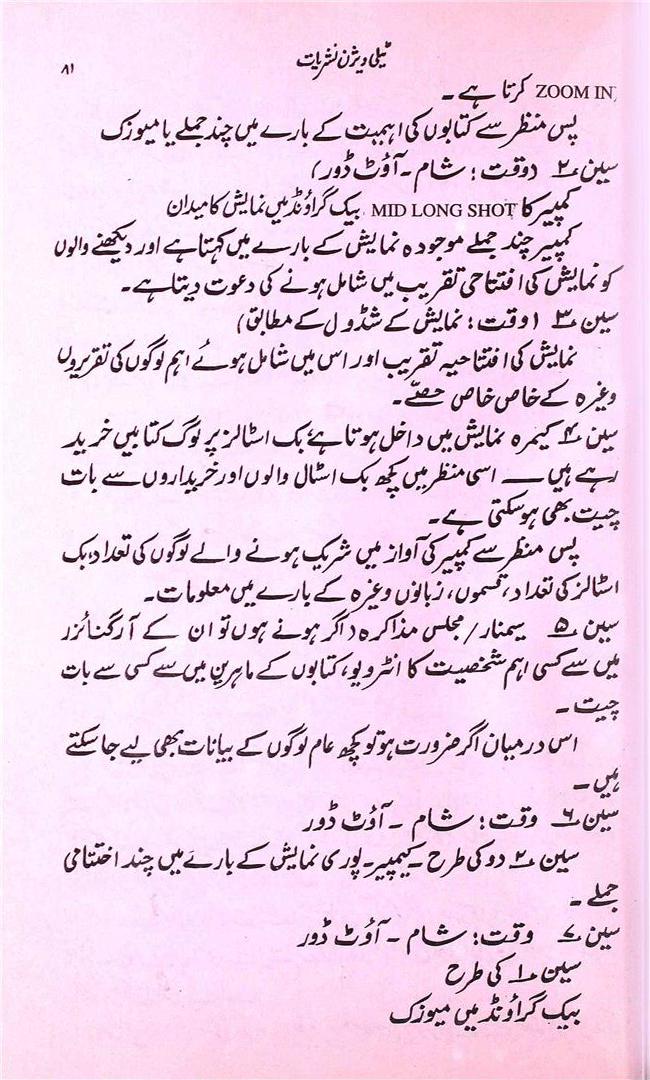 ٹیلی ویژن نشریات
۸۱
ZOOM IN کرتا ہے ۔
پس منظر سے کتابوں کی اہمیت کے بارے میں چند جملے یا میوزک
سین ۲ (وقت : شام ۔ آؤٹ ڈور)
کمپیر کا MID LONG SHOT بیک گراؤنڈ میں نمایش کا میدان
کمپیر چند جملے موجودہ نمایش کے بارے میں کہتا ہے اور دیکھنے والوں
کو نمایش کی افتتاحی تقریب میں شامل ہونے کی دعوت دیتا ہے۔
سین ۳ (وقت : نمایش کے شڈول کے مطابق)
نمایش کی افتتاحیہ تقریب اور اس میں شامل ہوئے اہم لوگوں کی تقریروں
وغیرہ کے خاص خاص حصّے۔
سین ۴ کیمرہ نمایش میں داخل ہوتا ہے بک اسٹالز پر لوگ کتابیں خرید
رہے ہیں ـــ اسی منظر میں کچھ بک اسٹال والوں اور خریداروں سے بات
چیت بھی ہوسکتی ہے۔
پس منظر سے کمپیر کی آواز میں شریک ہونے والے لوگوں کی تعداد، بک
اسٹالز کی تعداد، قسموں، زبانوں وغیرہ کے بارے میں معلومات۔
سین ۵ سیمنار / مجلس مذاکرہ (اگر ہونے ہوں تو ان کے آرگنائزر
میں سے کسی اہم شخصیت کا انٹرویو، کتابوں کے ماہرین میں سے کسی سے بات
چیت ۔
اس درمیان اگر ضرورت ہو تو کچھ عام لوگوں کے بیانات بھی لیے جا سکتے
ہیں ۔
سین ۶ وقت : شام ۔ آؤٹ ڈور
سین ۲ دو کی طرح ۔ کیمپیر ۔ پوری نمایش کے بارے میں چند اختتامی
جملے ۔
سین ۷ وقت : شام ۔ آؤٹ ڈور
سین ۱ کی طرح
بیک گراؤنڈ میں میوزک